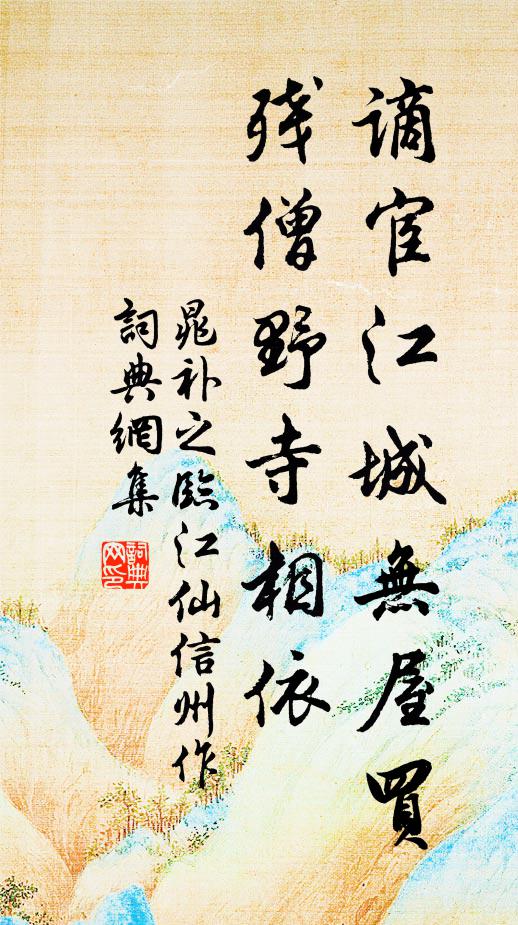 谪宦江城無屋買
残僧野寺相依
晁补之臨江仙信州作
詞典網集
詞典
网印